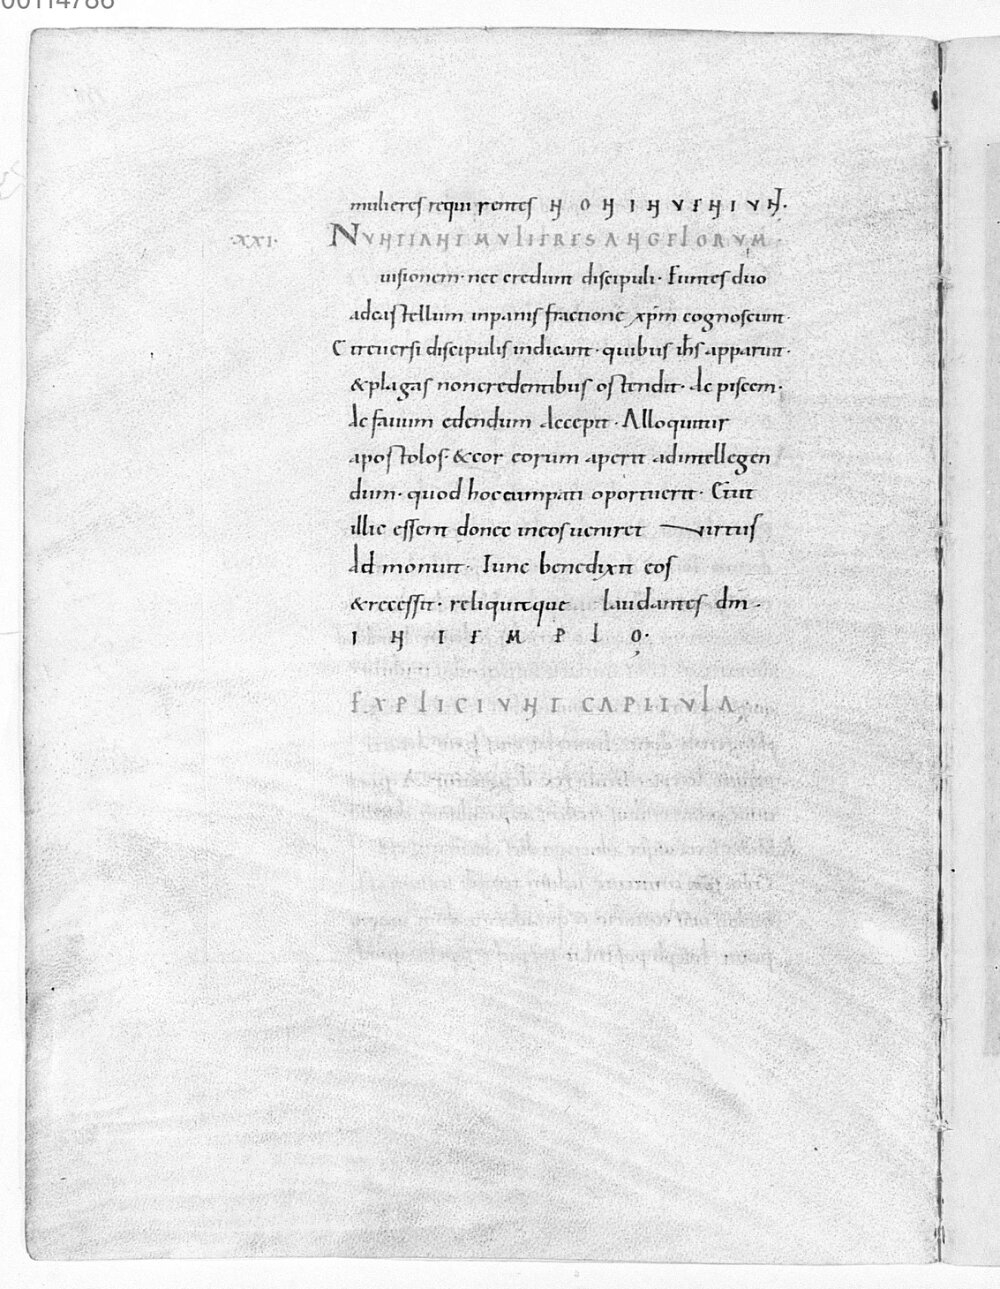 00114786
mulieres requirentes NON INUENIUNT.
·XXI· NUNTIANT MULIERES ANGELORUM·
uisionem· nec credunt discipuli· Euntes duo
ad castellum inpanis fractione xp̄m cognoscunt·
Et reuersi discipulis indicant· quibus ih̄s apparuit·
& plagas non credentibus ostendit· Ac piscem·
Ac fauum edendum Accepit· Alloquitur
apostolos· & cor eorum aperit ad intellegen
dum· quod hoc eum pati oportuerit· Et ut
illic essent donec in eos ueniret uirtus
Admonuit· Tunc benedixit eos
& recessit· reliquitque laudantes dm̄·
IN TEMPLO·
EXPLICIUNT CAPITULA,